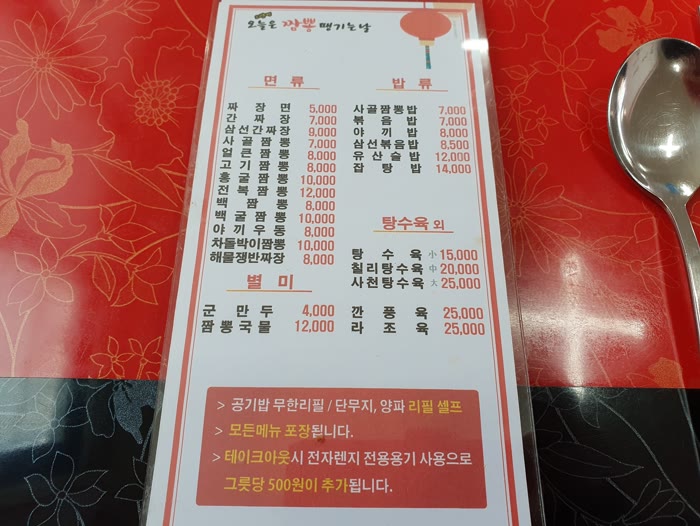 오늘은 짬뽕 땡기는날
면 류
짜 장 면 5,000
간 짜 장 7,000
삼선간짜장 9,000
사 골 짬 뽕 7,000
얼 큰 짬 뽕 8,000
고 기 짬 뽕 8,000
홍 굴 짬 뽕 10,000
전 복 짬 뽕 12,000
백 짬 뽕 8,000
백 굴 짬 뽕 10,000
야 끼 우 동 8,000
차돌박이짬뽕 10,000
해물쟁반짜장 8,000
별 미
군 만 두 4,000
짬 뽕 국 물 12,000
밥 류
사골짬뽕밥 7,000
볶 음 밥 7,000
야 끼 밥 8,000
삼선볶음밥 8,500
유 산 슬 밥 12,000
잡 탕 밥 14,000
탕수육 외
탕 수 육 小 15,000
칠리탕수육 中 20,000
사천탕수육 大 25,000
깐 풍 육 25,000
라 조 육 25,000
> 공기밥 무한리필 / 단무지, 양파 리필 셀프
> 모든메뉴 포장됩니다.
> 테이크아웃시 전자렌지 전용용기 사용으로
그릇당 500원이 추가됩니다.